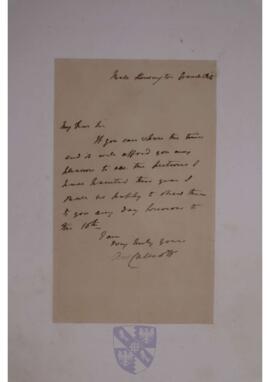 My dear Sir
If you can spare the time
and it will afford you any
pleasure to see the pictures I
have painted this year I
shall be happy to show them
to you any day previous to
the 10th
I am
very truly yours
Callcott